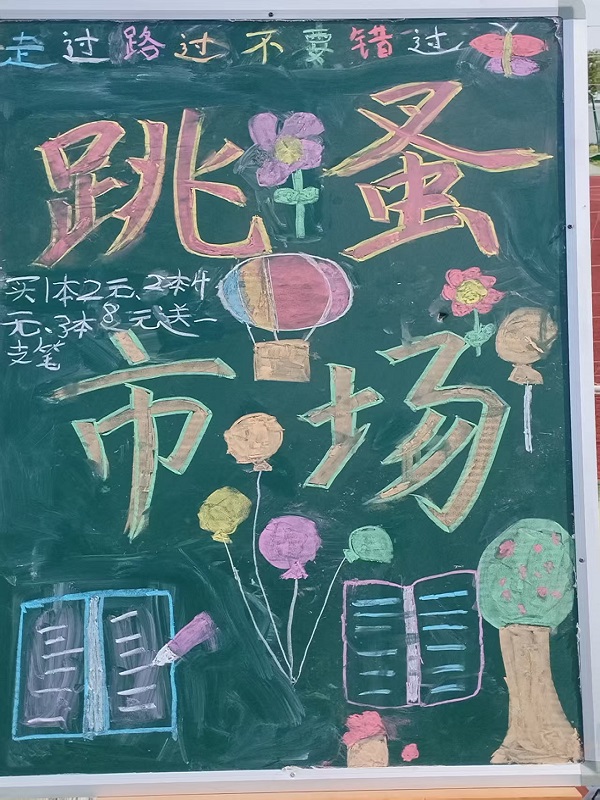 走过路过不要错过
跳蚤
买1本2元、2本4
元、3本8元送一
支笔
市场